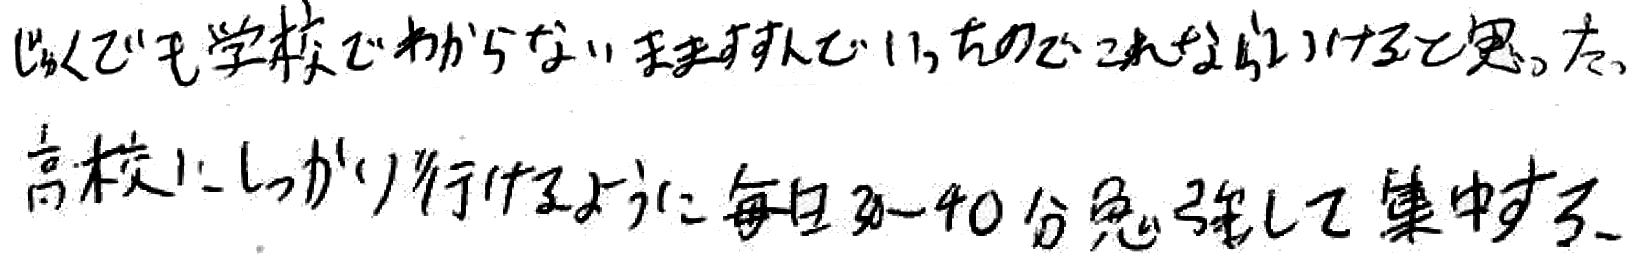 じゅくでも学校でわからないまますすんでいったのでこれならいけると思った。
高校にしっかり行けるように毎日30~40分勉強して集中する。